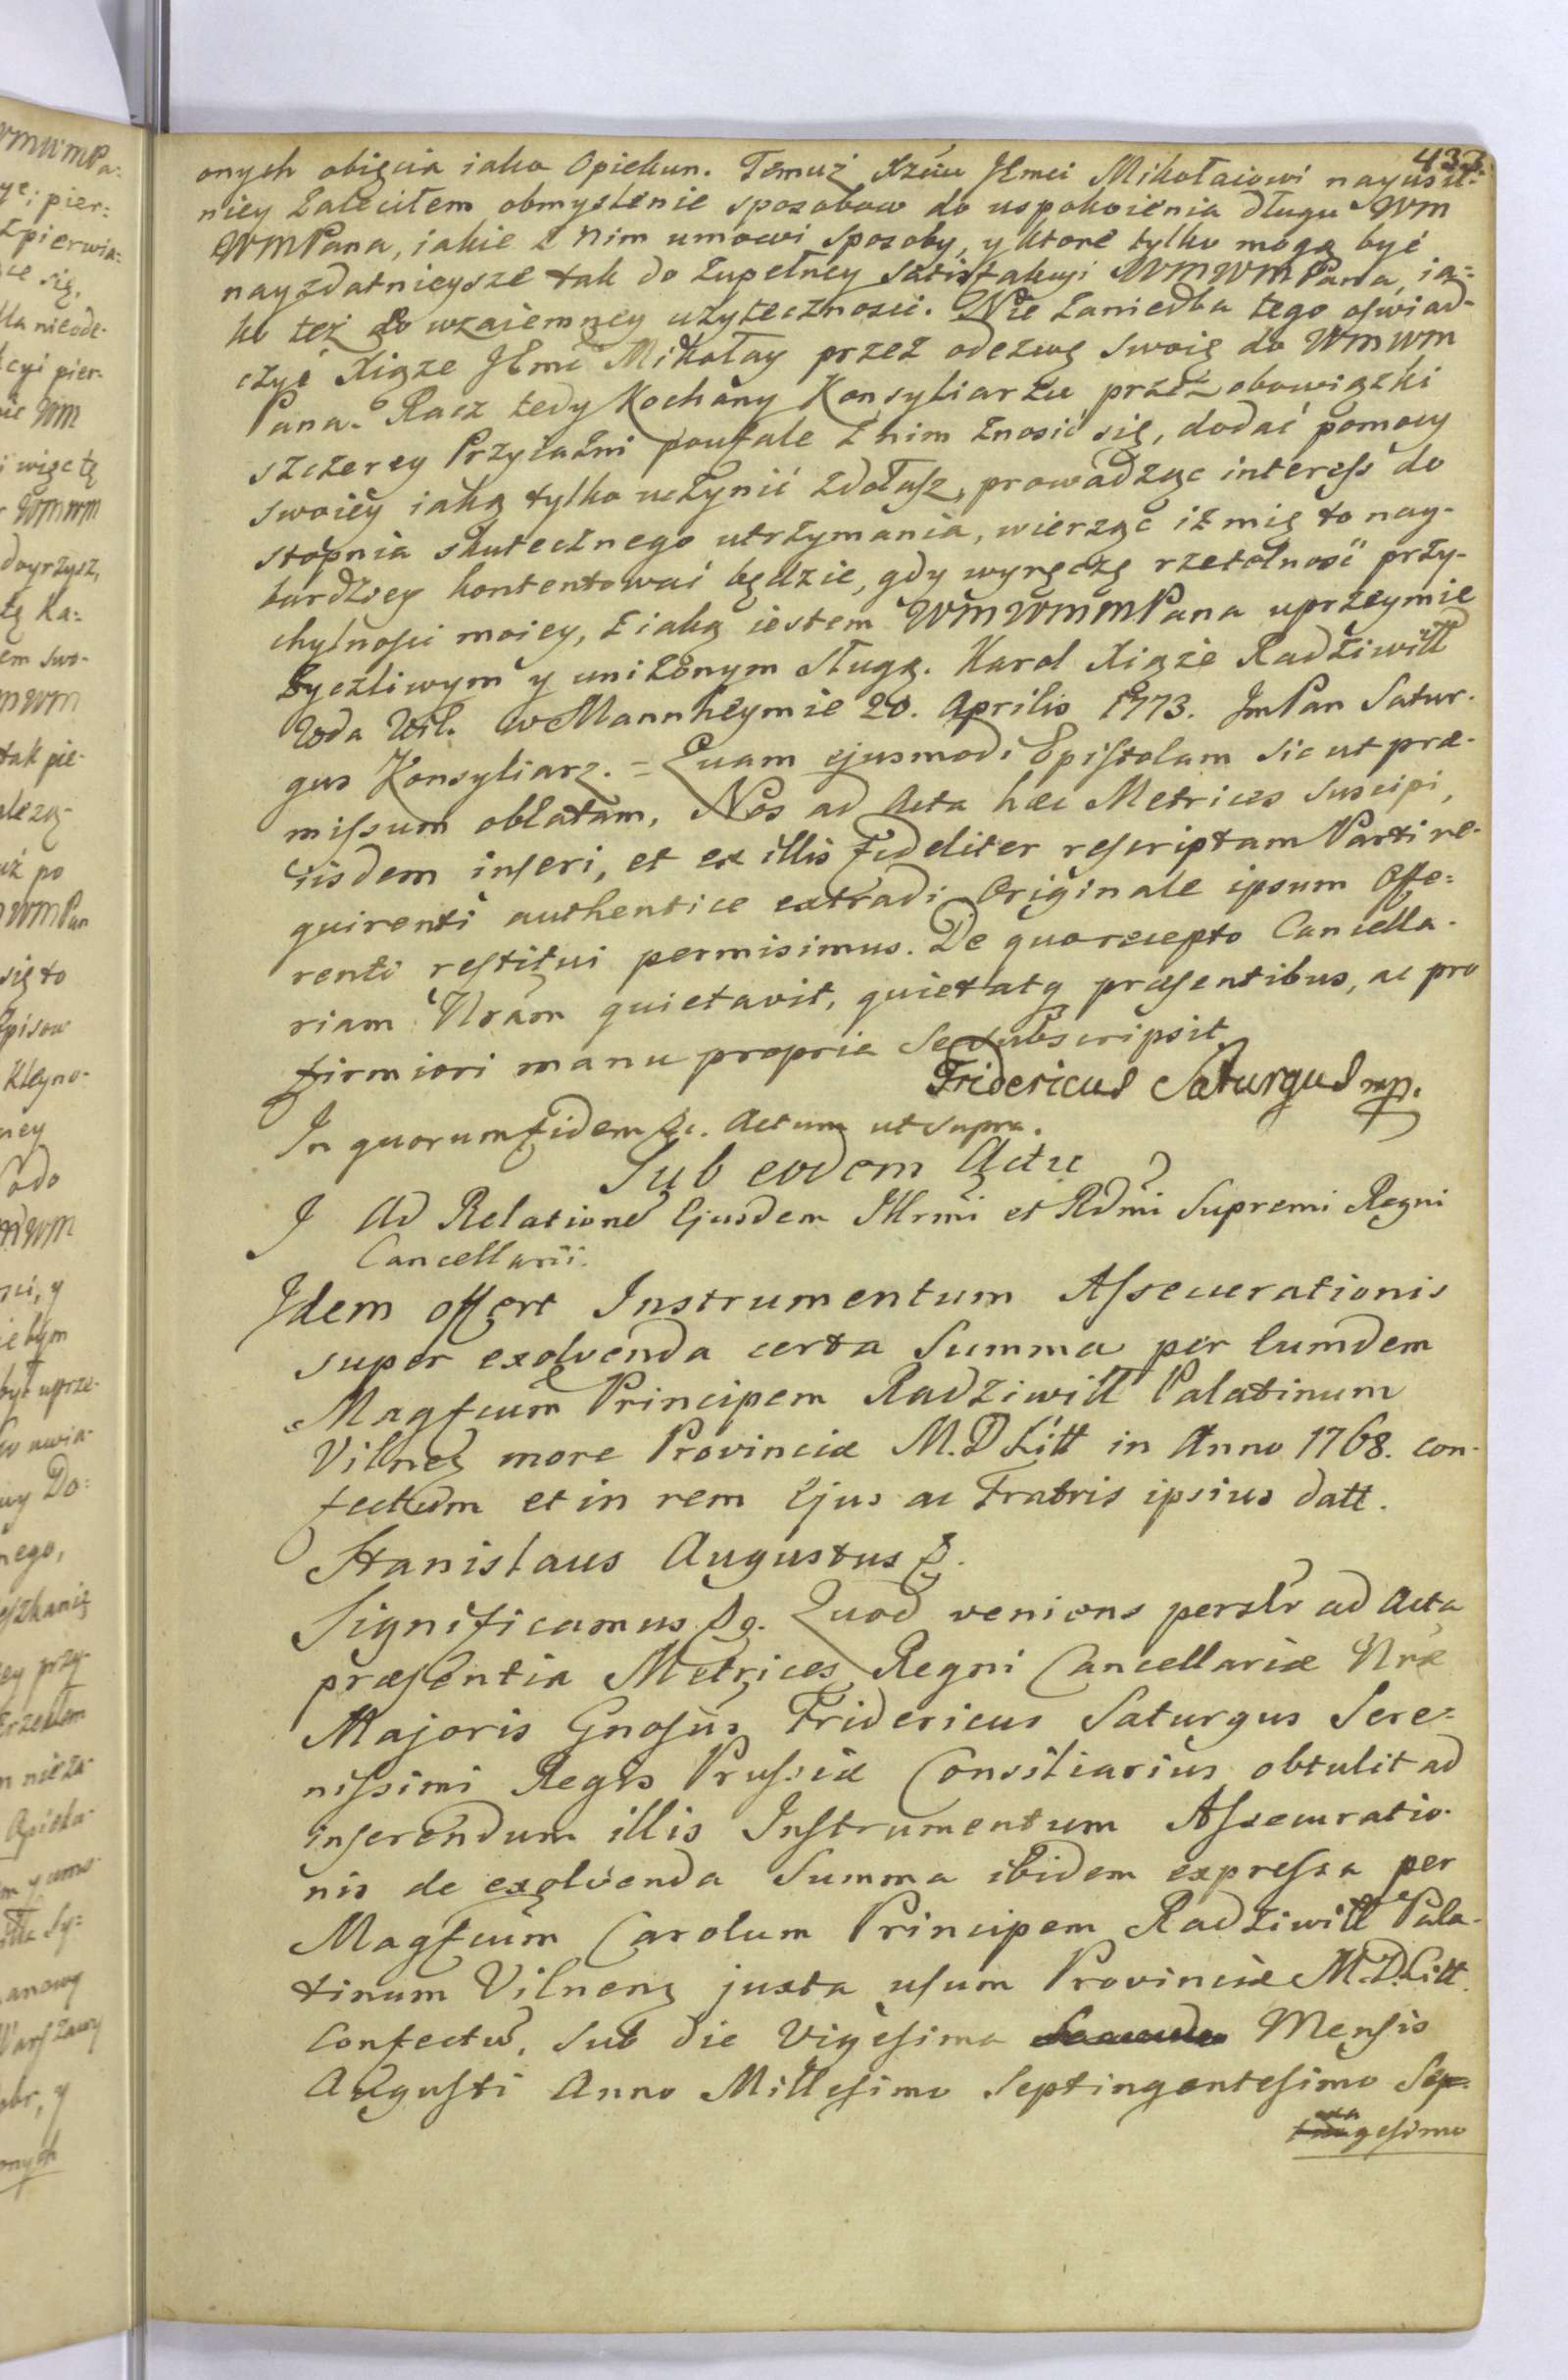 433
onych obięcia iako Opiekun. Temuż Xżciu JEmci Mikołaiowi nayusil-
niey zaleciłem obmyslenie sposobow do uspokoienia długu WM
WMPana, iakie z nim umowi sposoby, y ktore tylko mogą być
nayzdatnieysze tak do zupełney satisfakcyi WMWMPana, ia=
ko też do wzaiemney użyteczności. Nie zaniedba tego oświad-
czyć Xiąże JEmć Mikołay przez odezwę swoię do WMWM
Pana. Racz tedy Kochany Konsyliarzu przez obowiązki
szczerey Przyiaźni poufale z nim znosić się, dodać pomocy
swoiey iaką tylko uczynić zdołasz, prowadząc interess do
stopnia skutecznego utrzymania, wierząc iż mię to nay-
bardziey kontentować będzie, gdy wyręczę rzetelność przy-
chylności moiey, z iaką iestem WMWMMPana uprzeymie
życzliwym y uniżonym sługą. Karol Xiąże Radziwiłł
Wda Wil. w Mannheymie 20. Aprilis 1773. JmPan Satur-
gus Konsyliarz. = Quam ejusmodi Epistolam sic ut præ-
missum oblatam, Nos ad Acta hæc Metrices suscipi,
iisdem inseri, et ex illis fideliter rescriptam Parti re-
quirenti authentice extradi Originale ipsum Offe=
renti restitui permisimus. De quo recepto Cancella-
riam Nram quietavit, quietatq præsentibus, ac pro
firmiori manu propria se subscripsit.
Fridericus Saturgus mp.
In quorum fidem &c. Actum ut supra.
Sub eodem Actu
J Ad Relatione Ejusdem Illrmi et Rdmi Supremi Regni
Cancellarii.
Idem offert Instrumentum Assecurationis
super exolvenda certa Summa per Eumdem
Magfcum Principem Radziwiłł Palatinum
Vilnes more Provinciæ M.D Litt in Anno 1768. con-
fectum et in rem Ejus ac Fratris ipsius datt.
Stanislaus Augustus &.
Significamus &. Quod veniens persłr ad Acta
præsentia Metrices Regni Cancellariæ Nræ
Majoris Gnosus Fridericus Saturgus Sere=
nissimi Regis Prussiæ Consiliarius obtulit ad
inserendum illis Instrumentum Assecuratio-
nis de exolvenda Summa ibidem expressa per
Magfcum Carolum Principem Radziwiłł Pala-
tinum Vilnens juxta usum Provinciæ M.D.Litt.
Confectu, sub die Vigesima Mensis
Augusti Anno Millesimo Septingentesimo Sep=
gesimo